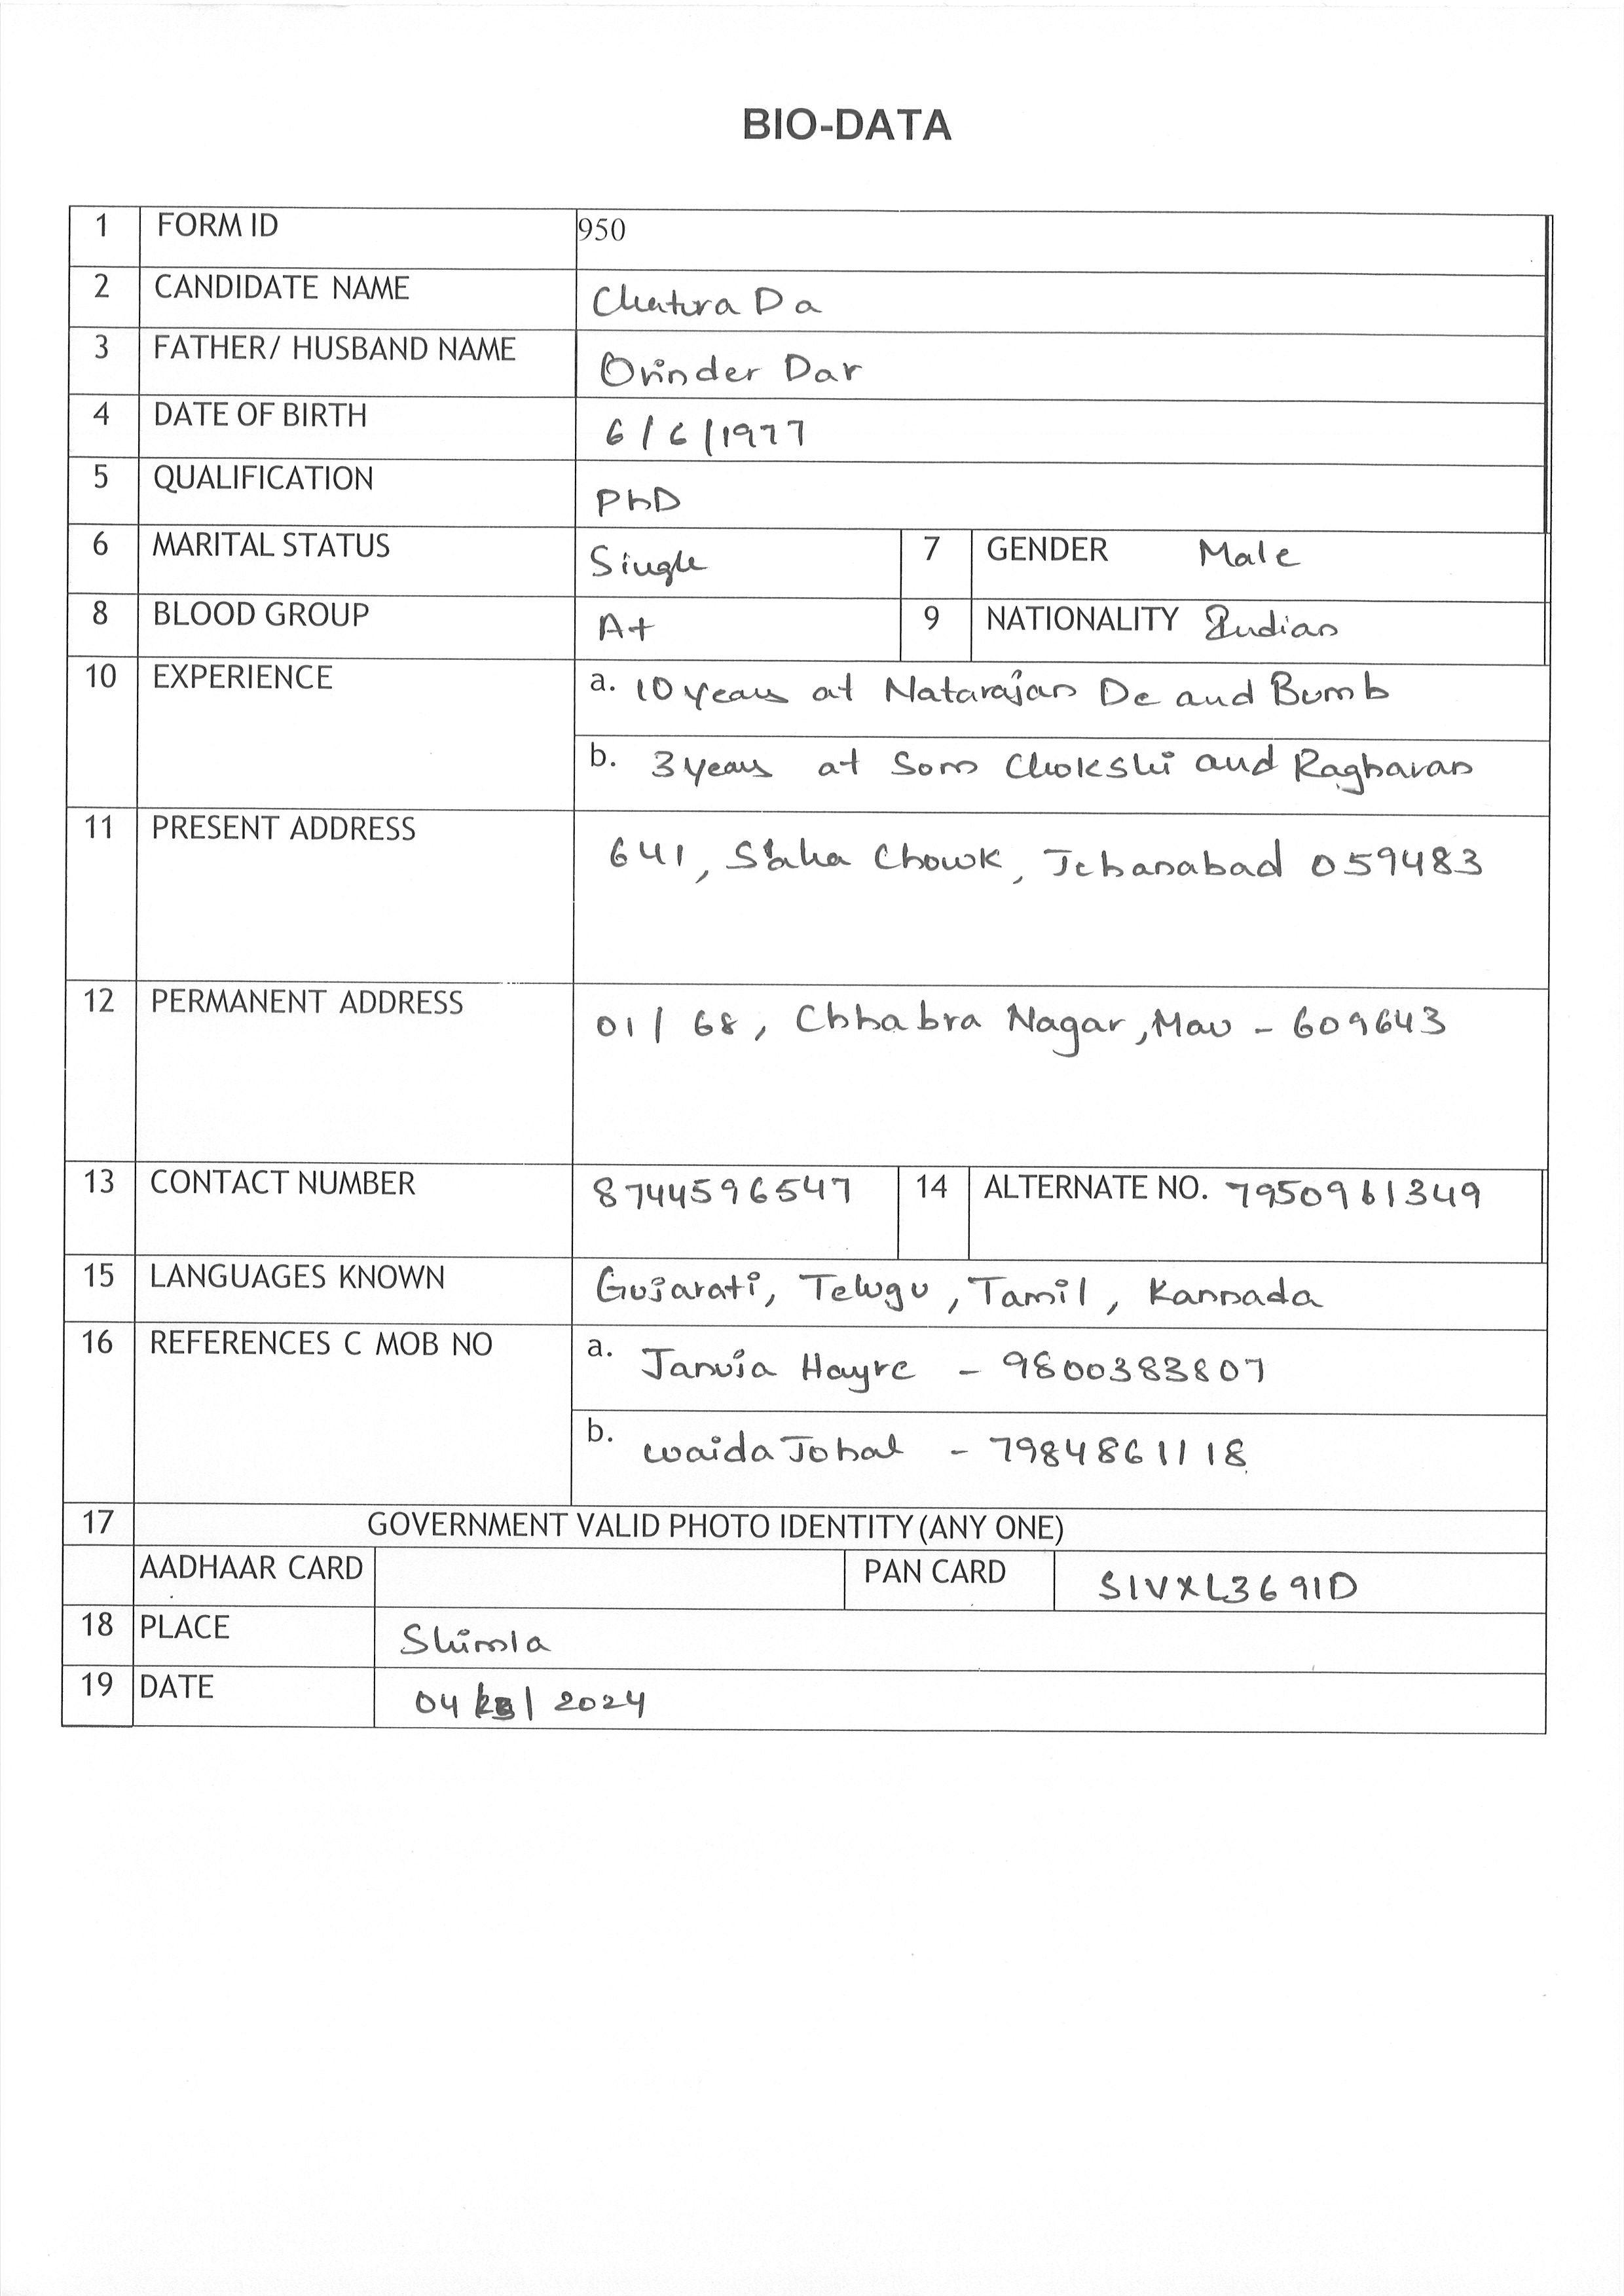 BIO-DATA
1 FORM ID 950
2 CANDIDATE NAME Chatura Da
3 FATHER/ HUSBAND NAME Orinder Dar
4 DATE OF BIRTH 6/6/1977
5 QUALIFICATION PhD
6 MARITAL STATUS Single 7 GENDER Male
8 BLOOD GROUP A+ 9 NATIONALITY Indian
10 EXPERIENCE a. 10 years at Natarajan De and Bumb
b. 3 years at Som Chokshi and Raghavan
11 PRESENT ADDRESS 641, Chowk, Jehanabad 059483
12 PERMANENT ADDRESS 01/68, Chhabra Nagar, Mau - 609643
13 CONTACT NUMBER 8744596547 14 ALTERNATE NO. 7950961349
15 LANGUAGES KNOWN Gujarati, Telugu, Tamil, Kannada
16 REFERENCES C MOB NO a. Hayre - 9800383807
b. Waida Johal - 7984861118
17 GOVERNMENT VALID PHOTO IDENTITY (ANY ONE)
AADHAAR CARD PAN CARD SIVXL3691D
18 PLACE Shimla
19 DATE 04/ /2024